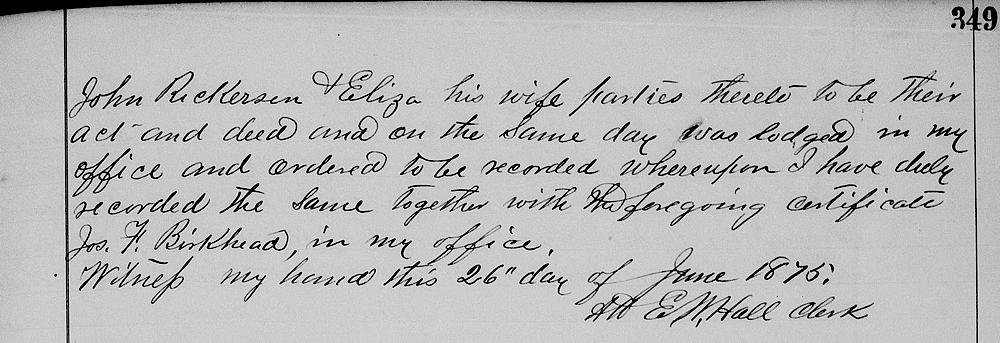 349
John Rickersen & Eliza his wife parties thereto to be their
act and deed and on the same day was lodged in my
office and ordered to be recorded whereupon I have duly
recorded the same together with the foregoing certificate
Jos. F. Birkhead, in my office.
Witness my hand this 26" day of June 1875.
Att E. W. Hall Clerk